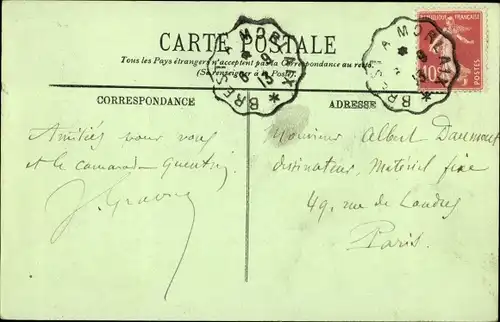 CARTE POSTALE
Tous les Pays étrangers n'acceptent pas la Correspondance au recto.
(Se renseigner à la Poste).
BREST A MORLAIX
BREST A MORLAIX
REPUBLIQUE FRANÇAISE
10c
POSTES
CORRESPONDANCE
ADRESSE
Amitiés pour vous
et le camarade Quentin
Monsieur Albert
dessinateur, Matériel fixe
49, rue de Londres
Paris.